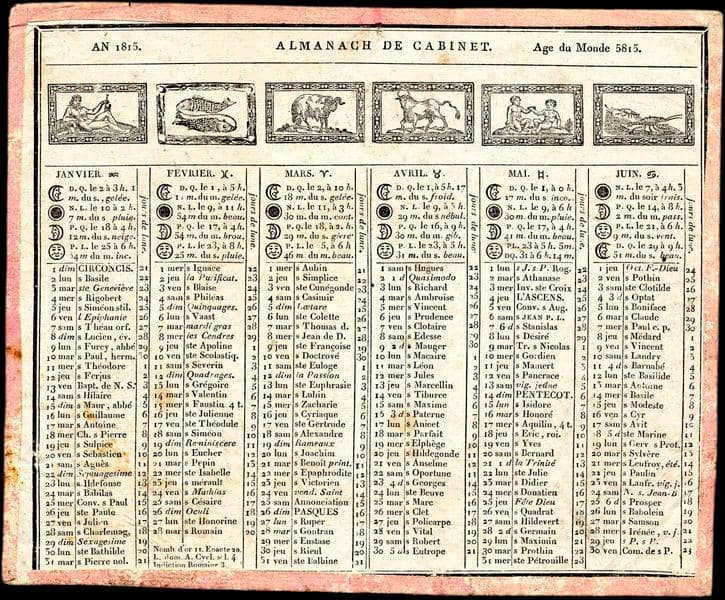 AN 1815.
ALMANACH DE CABINET.
Age du Monde 5815.
JANVIER.
D. Q. le 2 à 3 h. 1
m. du s. gelée.
N. L. le 10 à 2 h.
7 m. du s pluie.
P. Q. le 18 à 4 h.
12 m. du s. neige.
P L. le 25 à 6 h.
34 m. du m. inc.
jours de lune.
1 dim CIRCONCIS.
2 lun s Basile
3 mar ste Geneviève
4 mer s Rigobert
5 jeu s Siméon stil.
6 ven L'Epiphanie
7 sam s Théau orf.
8 dim s Lucien, év.
9 lun s Furcy, abbé
10 mar s Paul, herm.
11 mer s Théodore
12 jeu s Ferjus
13 ven Bapt. de N. S.
14 sam s Hilaire
15 dim s Maur, abbé
16 lun s Guillaume
17 mar s Antoine
18 mer Ch. s Pierre
19 jeu s Sulpice
20 ven s Sébastien
21 sam s Agnès
22 dim Septuagesime
23 lun s Ildefonse
24 mar s Babilas
25 mer Conv. s Paul
26 jeu ste Paule
27 ven s Julien
28 sam s Charlemag.
29 dim Sexagesime
30 lun ste Bathilde
31 mar s Pierre nol.
FEVRIER.
D. Q. le 1, à 5 h.
1 m. du m. gelée.
N. L. le 9, à 11 h.
54 m. du m. beau.
P. Q. le 17, à 4 h.
54 m. du m. brou.
P L. le 23, à 8 h.
25 m. du s. pluie.
jours de lune.
1 mer s Ignace
2 jeu la Purificat.
3 ven s Blaise
4 sam s Philéas
5 dim Quinquages.
6 lun s Vaast
7 mar mardi gras
8 mer les Cendres
9 jeu ste Apoline
10 ven ste Scolastiq.
11 sam s Severin
12 dim Quadrages.
13 lun s Grégoire
14 mar s Valentin
15 mer s Faustin 4 t.
16 jeu ste Julienne
17 ven ste Théodule
18 sam s Siméon
19 dim Reminiscere
20 lun s Eucher
21 mar s Pepin
22 mer ste Isabelle
23 jeu s mérault
24 ven s Mathias
25 sam s Césaire
26 dim Oculi
27 lun ste Honorine
28 mar s Romain
Nomb. d'or 11. Epacte 20.
L. dom. A. Cycl. s l. 4
Indiction Romaine 3.
MARS.
D. Q. le 2, à 10 h.
18 m. du s. gelée.
N. L. le 11, à 3 h.
30 m. du m. couv.
P. Q. le 18, à 2 h.
29 m. du s. givre
P L. le 5, à 6 h
46 m. du m. beau.
jours de lune.
1 mer s Aubin
2 jeu s Simplice
3 ven ste Cunégonde
4 sam s Casimir
5 dim Lætare
6 lun ste Colette
7 mar s Thomas d.
8 mer s Jean de D.
9 jeu ste Françoise
10 ven s Doctrové
11 sam ste Euloge
12 dim la Passion
13 lun ste Euphrasie
14 mar s Lubin
15 mer s Zacharie
16 jeu s Cyriaque
17 ven ste Gertrude
18 sam s Alexandre
19 dim Rameaux
20 lun s Joachim
21 mar s Benoit print.
22 mer s Epaphrodite
23 jeu s Victorien
24 ven vend. Saint
25 sam Annonciation
26 dim PASQUES
27 lun s Ruper
28 mar s Gontran
29 mer s Eustase
30 jeu s Rieul
31 ven ste Balbine
AVRIL.
D. Q. le 1, à 5 h. 17
m. du s. froid.
N L. le 9, à 5 h.
29 m. du s nébul.
P. Q. le 16, à 9 h.
30 m. du m. gib.
P L. le 23, à 5 h.
31 m. du s. beau.
jours de lune.
1 sam s Hugues
2 d Quasimodo
3 lun s Richard
4 mar s Ambroise
5 mer s Vincent
6 jeu s Prudence
7 ven s Clotaire
8 sam s Edesse
9 d s Mauger
10 lun s Macaire
11 mar s Léon
12 mer s Jules
13 jeu s Marcellin
14 ven s Tiburce
15 sam s Maxime
16 d s Paterne
17 lun s Anicet
18 mar s Parfait
19 mer s Elphège
20 jeu s Hildegonde
21 ven s Anselme
22 sam s Oportune
23 d s Georges
24 lun ste Beuve
25 mar s Marc
26 mer s Clet
27 jeu s Policarpe
28 ven s Vital
29 sam s Robert
30 d s Eutrope
MAI.
D. Q. le 1, à 0 h.
17 m. du s. inco.
N. L. le 9, à 6 h.
30 m. du m. pluie.
P. Q. le 17, à 4 h.
41 m. du m. beau.
P L. 23 à 5 h. 5 m.
DQ. 31 à 6 h. 14 m.
jours de lune.
1 lun s J. s P. Rog.
2 mar s Athanase
3 mer Inv. ste Croix
4 jeu L'ASCENS.
5 ven Conv. s Aug.
6 sam s JEAN P. L.
7 d s Stanislas
8 lun s Désiré
9 mar Tr. s Nicolas
10 mer s Gordien
11 jeu s Mamert
12 ven s Pancrace
13 sam vig. jeûne
14 dim PENTECOT.
15 lun s Isidore
16 mar s Honoré
17 mer s Aquilin, 4 t.
18 jeu s Eric, roi.
19 ven s Yves
20 sam s Bernard
21 d la Trinité
22 lun ste Julie
23 mar s Didier
24 mer s Donatien
25 jeu Fête Dieu
26 ven s Quadrat
27 sam s Hildevert
28 d s Germain
29 lun s Maximin
30 mar s Prothin
31 mer ste Pétrouille
JUIN.
N. L. le 7, à 4 h. 3
m. du soir
P. Q. le 14 à 8 h.
2 m. du m. pass.
P L. le 21 à 6 h.
9 m. du s. vent.
D. Q. le 29 à 9 h.
51 m. du s. beau.
jours de lune.
1 jeu Oct. F.-Dieu
2 ven s Pothin
3 sam ste Clotilde
4 d s Optat
5 lun s Boniface
6 mar s Claude
7 mer s Paul c. p.
8 jeu s Médard
9 ven s Vincent
10 sam s Landry
11 d s Barnabé
12 lun ste Basilide
13 mar s Antoine
14 mer s Basile
15 jeu s Modeste
16 ven s Cyr
17 sam s Avit
18 d ste Marine
19 lun s Gerv. s Prot.
20 mar s Sylvère
21 mer s Leufroy, été.
22 jeu s Paulin
23 ven s Lanfr. vig. j.
24 sam N. s. Jean-B
25 d s Prosper
26 lun s Babolein
27 mar s Samson
28 mer s Irénée, v. j.
29 jeu s P. s P.
30 ven Com. de s P.